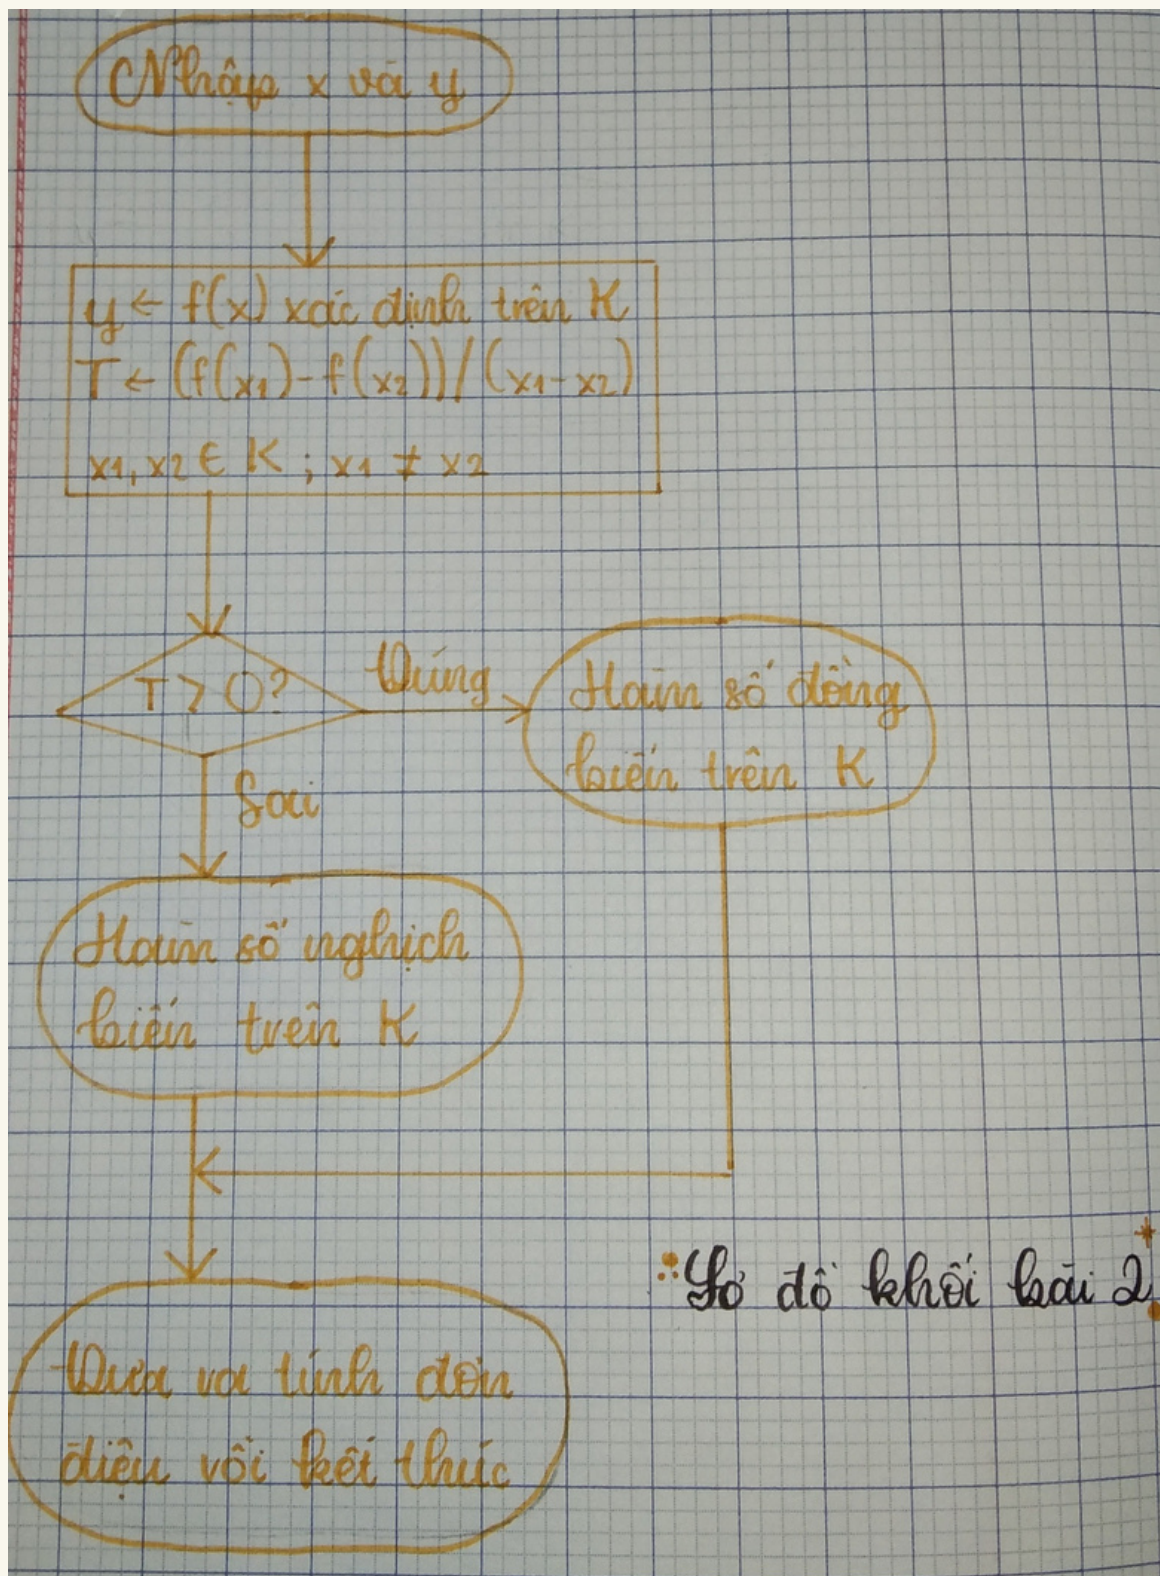 Nhập x và y
y ← f(x) xác định trên K
T ← (f(x1)-f(x2))/(x1-x2)
x1, x2 ∈ K ; x1 ≠ x2
T > 0?
Đúng
Hàm số đồng
biến trên K
Sai
Hàm số nghịch
biến trên K
Sơ đồ khối bài 2
Đưa ra tính đơn
điệu rồi kết thúc